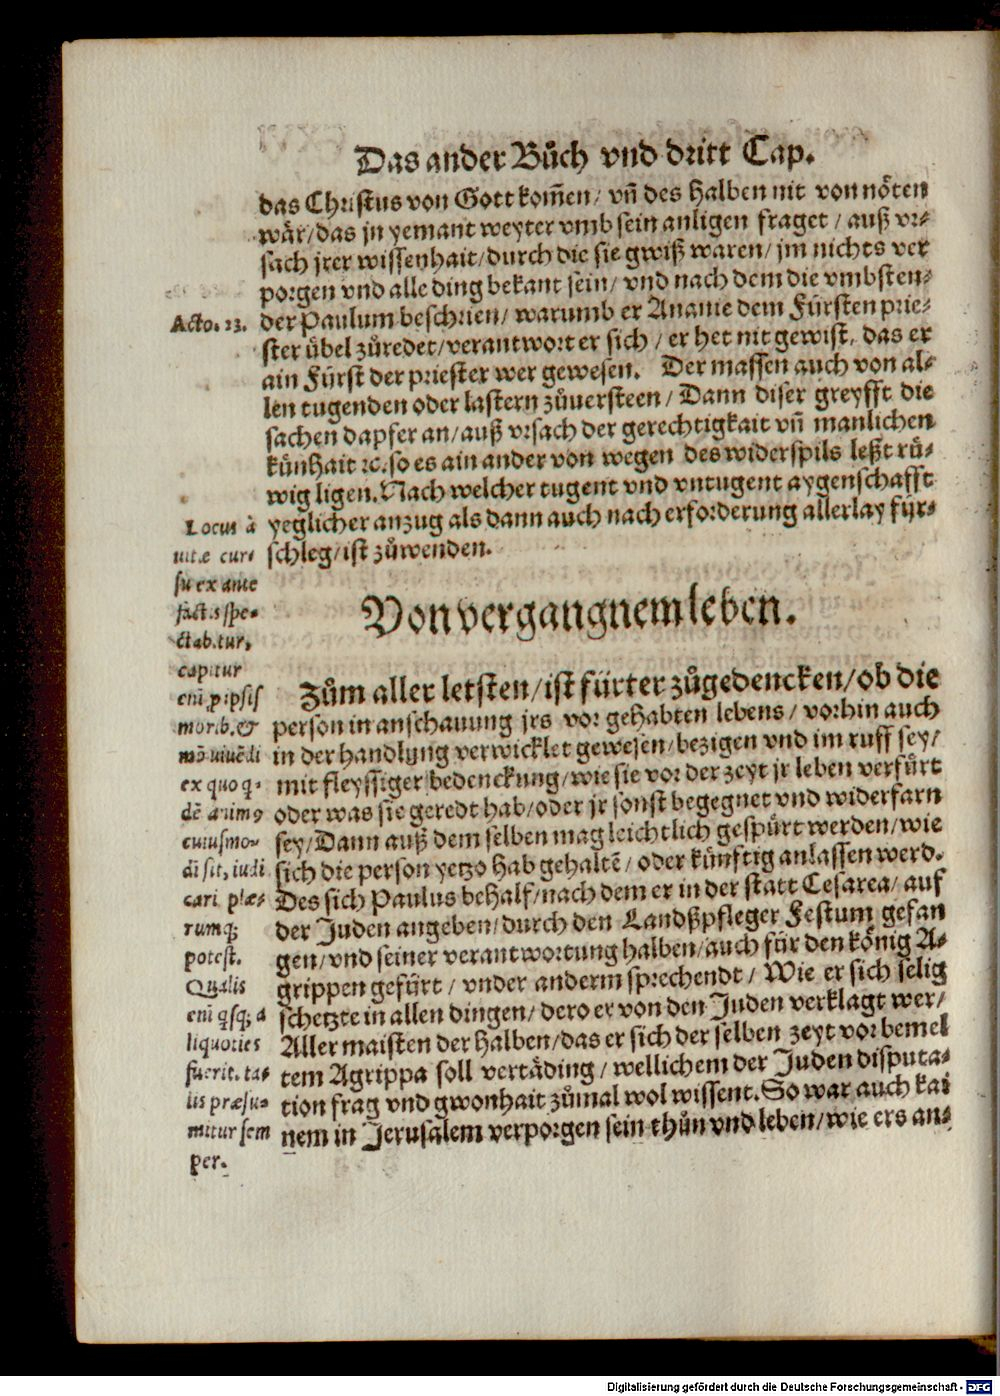 Das ander Bůch vnd dritt Cap.
das Christus von Gott kom̃en / vñ des halben nit von nöten
wär / das jn yemant weyter vmb sein anligen fraget / auß vr⸗
sach jrer wissenhait / durch die sie gwiß waren / jm nichts ver
porgen vnd alle ding bekant sein / vnd nach dem die vmbsten⸗
der Paulum beschrien / warumb er Ananie dem Fürsten prie⸗
ster übel zůredet / verantwort er sich / er het nit gewist, das er
ain Fürst der priester wer gewesen. Der massen auch von al⸗
len tugenden oder lastern zůuersteen / Dann diser greyfft die
sachen dapfer an / auß vrsach der gerechtigkait vñ manlichen
künhait ꝛc. so es ain ander von wegen des widerspils leßt rů⸗
wig ligen. Nach welcher tugent vnd vntugent aygenschafft
yeglicher anzug als dann auch nach erforderung allerlay für⸗
schleg / ist zůwenden.
Acto. 23.
Von vergangnem leben.
Zům aller letsten / ist fürter zůgedencken / ob die
person in anschauung jrs vor gehabten lebens / vorhin auch
in der handlung verwicklet gewesen / bezigen vnd im ruff sey /
mit fleyssiger bedenckung / wie sie vor der zeyt jr leben verfürt
oder was sie geredt hab / oder jr sonst begegnet vnd widerfarn
sey / Dann auß dem selben mag leichtlich gespürt werden / wie
sich die person yetzo hab gehaltē / oder künftig anlassen werd.
Des sich Paulus behalf / nach dem er in der statt Cesarea / auf
der Juden angeben / durch den Landßpfleger Festum gefan
gen / vnd seiner verantwortung halben / auch für den könig A⸗
grippen gefürt / vnder anderm sprechendt / Wie er sich selig
schetzte in allen dingen / dero er von den Juden verklagt wer /
Aller maisten der halben / das er sich der selben zeyt vor bemel
tem Agrippa soll vertäding / wellichem der Juden disputa⸗
tion frag vnd gwonhait zůmal wol wissent. So war auch kai
nem in Jerusalem verporgen sein thůn vnd leben / wie ers an⸗
Locus à
uitæ cur⸗
su ex ante
factis spe⸗
ctabitur,
capitur
em̃ p ipsis
morib. &
mō uiuēdi
ex quo q⸗
dē animꝰ
cuiusmo⸗
di sit, iudi
cari plæ⸗
rumq;
potest.
Qualis
em̃ qsq; a
liquoties
fuerit. ta⸗
lis præsu⸗
mitur sem
per.
Digitalisierung gefördert durch die Deutsche Forschungsgemeinschaft - DFG